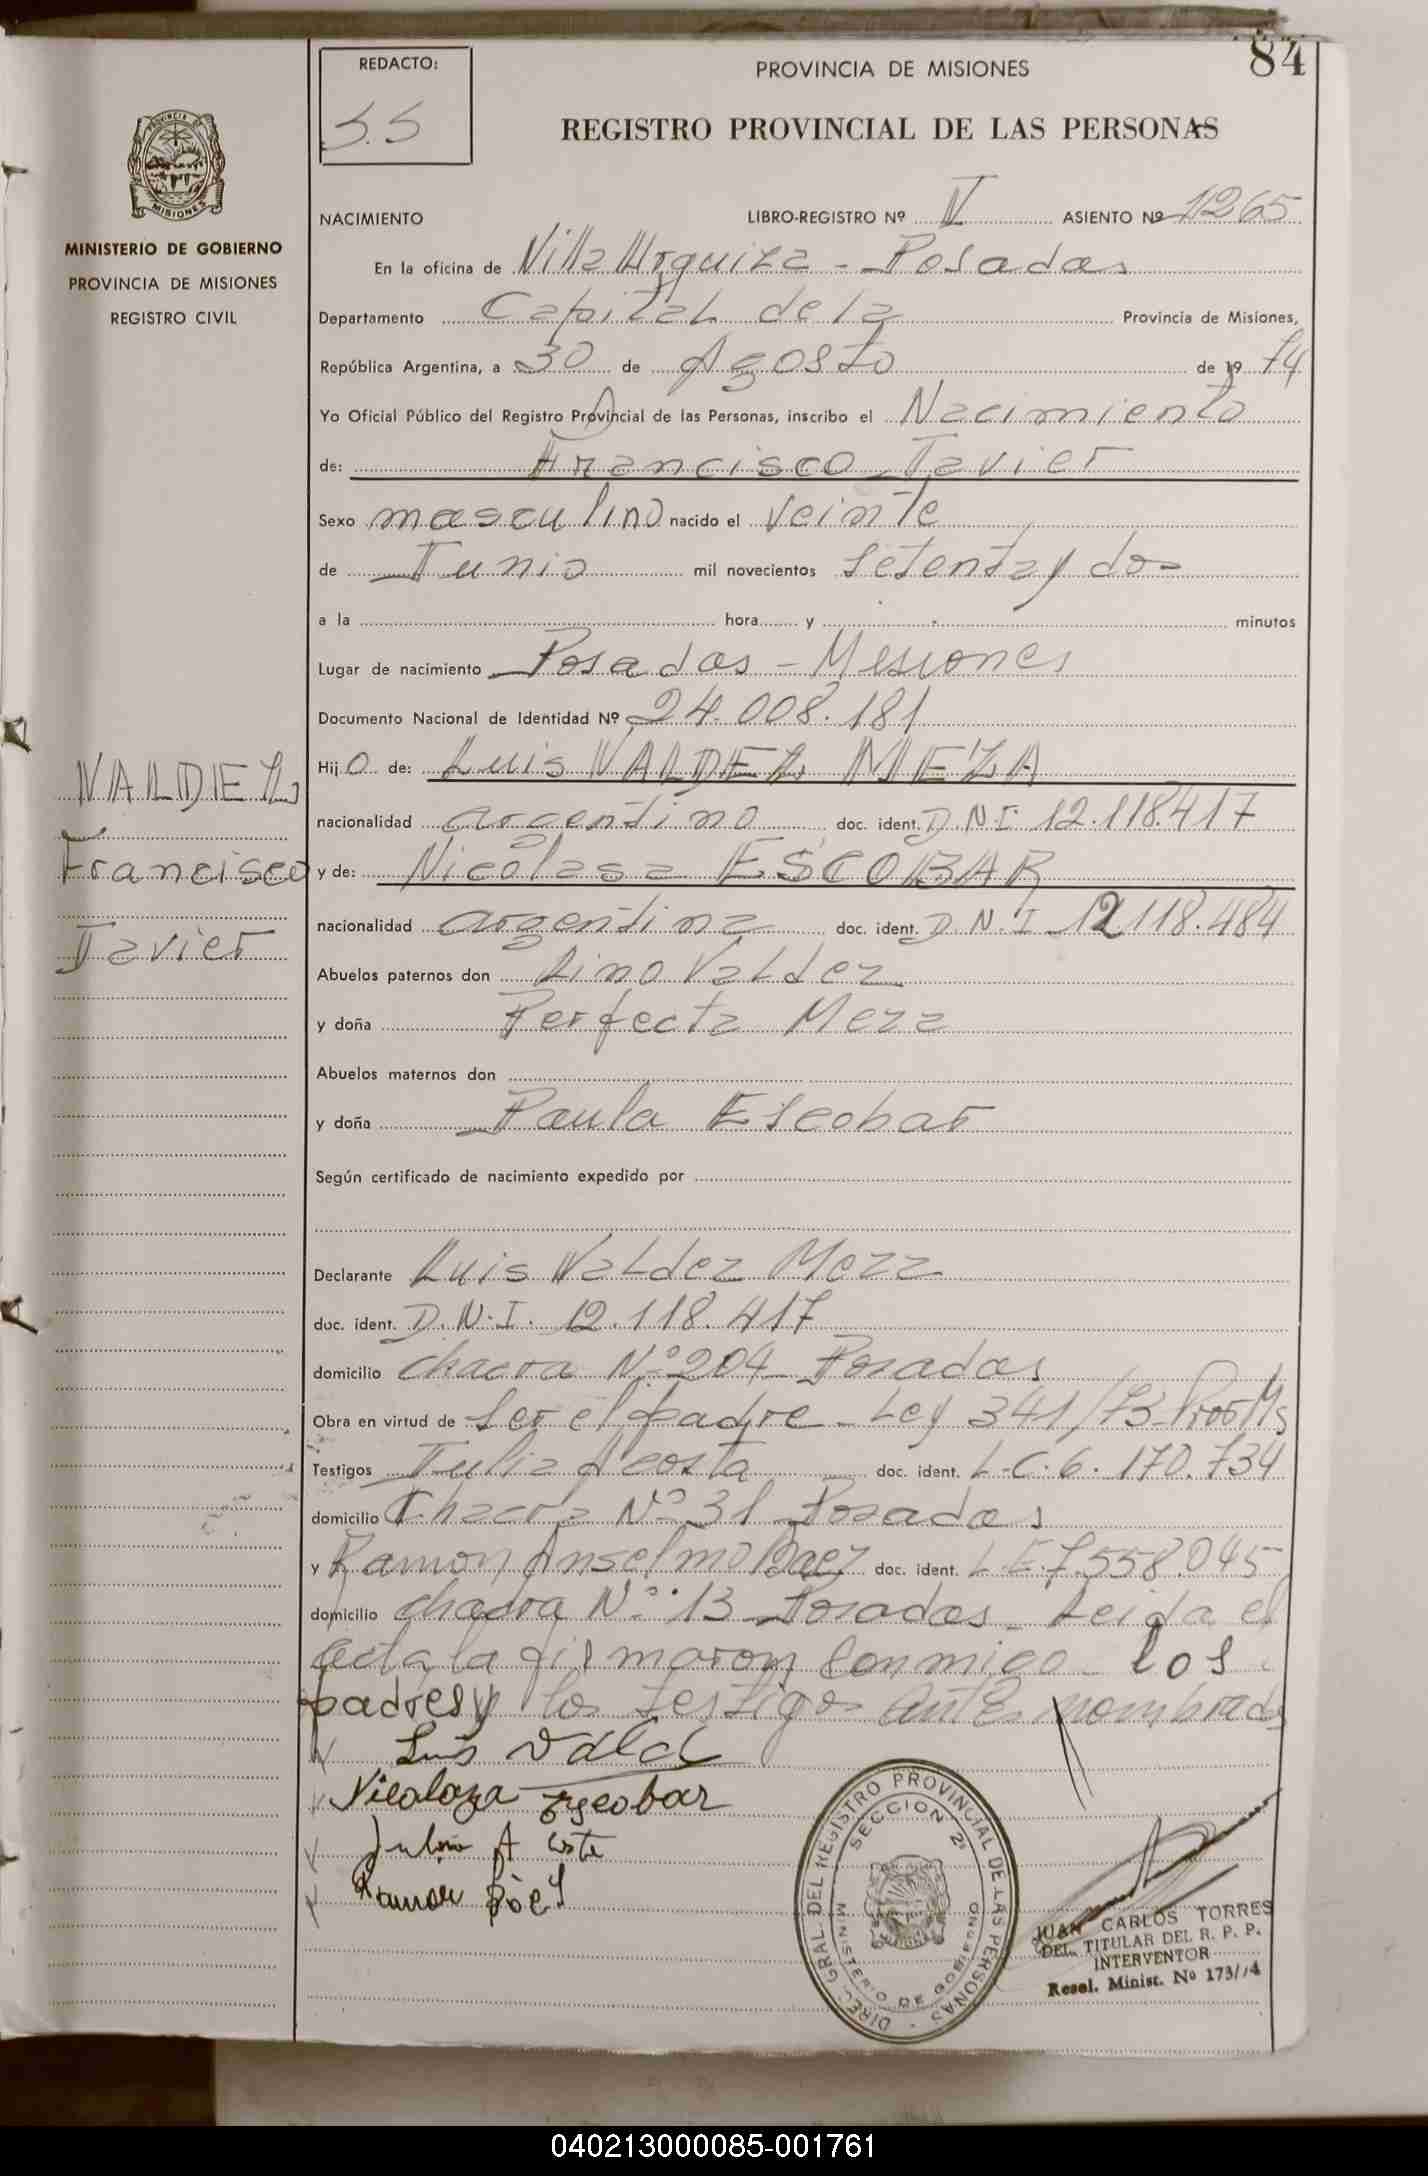 84
REDACTO:
S.S
PROVINCIA DE MISIONES
REGISTRO PROVINCIAL DE LAS PERSONAS
PROVINCIA DE
MISIONES
MINISTERIO DE GOBIERNO
PROVINCIA DE MISIONES
REGISTRO CIVIL
NACIMIENTO LIBRO-REGISTRO Nº IV ASIENTO Nº 1265
En la oficina de Villa Urquiza - Posadas
Departamento Capital de la Provincia de Misiones,
República Argentina, a 30 de Agosto de 1974
Yo Oficial Público del Registro Provincial de las Personas, inscribo el Nacimiento
de: Francisco Javier
Sexo masculino nacido el veinte
de Junio mil novecientos setenta y dos
a la hora y minutos
Lugar de nacimiento Posadas - Misiones
Documento Nacional de Identidad Nº 24.008.181
Hijo de: Luis VALDEZ MEZA
VALDEZ
nacionalidad argentino doc. ident. D.N.I. 12.118.417
Francisco
y de: Nicolasa ESCOBAR
nacionalidad argentina doc. ident. D.N.I 12.118.484
Javier
Abuelos paternos don Lino Valdez
y doña Perfecta Meza
Abuelos maternos don
y doña Paula Escobar
Según certificado de nacimiento expedido por
Declarante Luis Valdez Meza
doc. ident. D.N.I. 12.118.417
domicilio chacra Nº 204 Posadas
Obra en virtud de ser el padre - Ley 341/73
Testigos Julia Acosta doc. ident. L.C. 6.170.734
domicilio Chacra Nº 31 Posadas
y Ramon Anselmo Baez doc. ident. L.E 7.558.045
domicilio chacra Nº 13 Posadas - Leida el
acta, la firmaron conmigo los
padres y los testigos antes nombrados
Luis Valdez
Nicolaza Escobar
Julia Acosta
Ramon Báez
DIREC. GRAL. DEL REGISTRO PROVINCIAL DE LAS PERSONAS
SECCION 2ª
MINISTERIO DE GOBIERNO
JUAN CARLOS TORRES
DEL. TITULAR DEL R. P. P.
INTERVENTOR
Resol. Minist. Nº 173/74
040213000085-001761